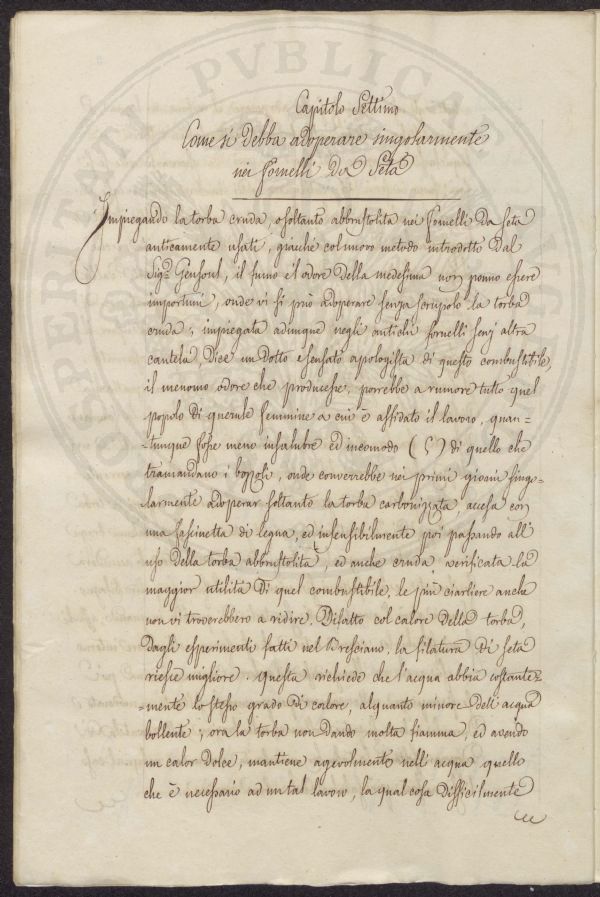 Capitolo Settimo
Come si debba adoperare singolarmente
nei fornelli da Seta
Impiegando la torba cruda, o soltanto abbrustolita nei fornelli da seta
anticamente usati, giacchè col nuovo metodo introdotto dal
Sig.r Gensoul, il fumo e l'odore della medesima non ponno essere
importuni, onde vi si può adoperare senza scrupolo la torba
cruda; impiegata adunque negli antichi fornelli senz'altra
cautela, dice un dotto e sensato apologista di questo combustibile,
il menomo odore che producesse, porrebbe a rumore tutto quel
popolo di querule femmine a cui è affidato il lavoro, quan=
=tunque fosse meno insalubre ed incomodo (5) di quello che
tramandano i bozzoli, onde converrebbe nei primi giorni singo=
larmente adoperar soltanto la torba carbonizzata, accesa con
una fascinetta di legna, ed insensibilmente poi passando all'
uso della torba abbrustolita, ed anche cruda, verificata la
maggior utilità di quel combustibile, le più ciarliere anche
non vi troverebbero a ridire. Difatto col calore della torba,
dagli esperimenti fatti nel Bresciano, la filatura di seta
riesce migliore. Questa richiede che l'acqua abbia costante=
=mente lo stesso grado di calore, alquanto minore dell'acqua
bollente; ora la torba non dando molta fiamma, ed avendo
un calor dolce, mantiene agevolmente nell'acqua quello
che è necessario ad un tal lavoro, la qual cosa difficilmente